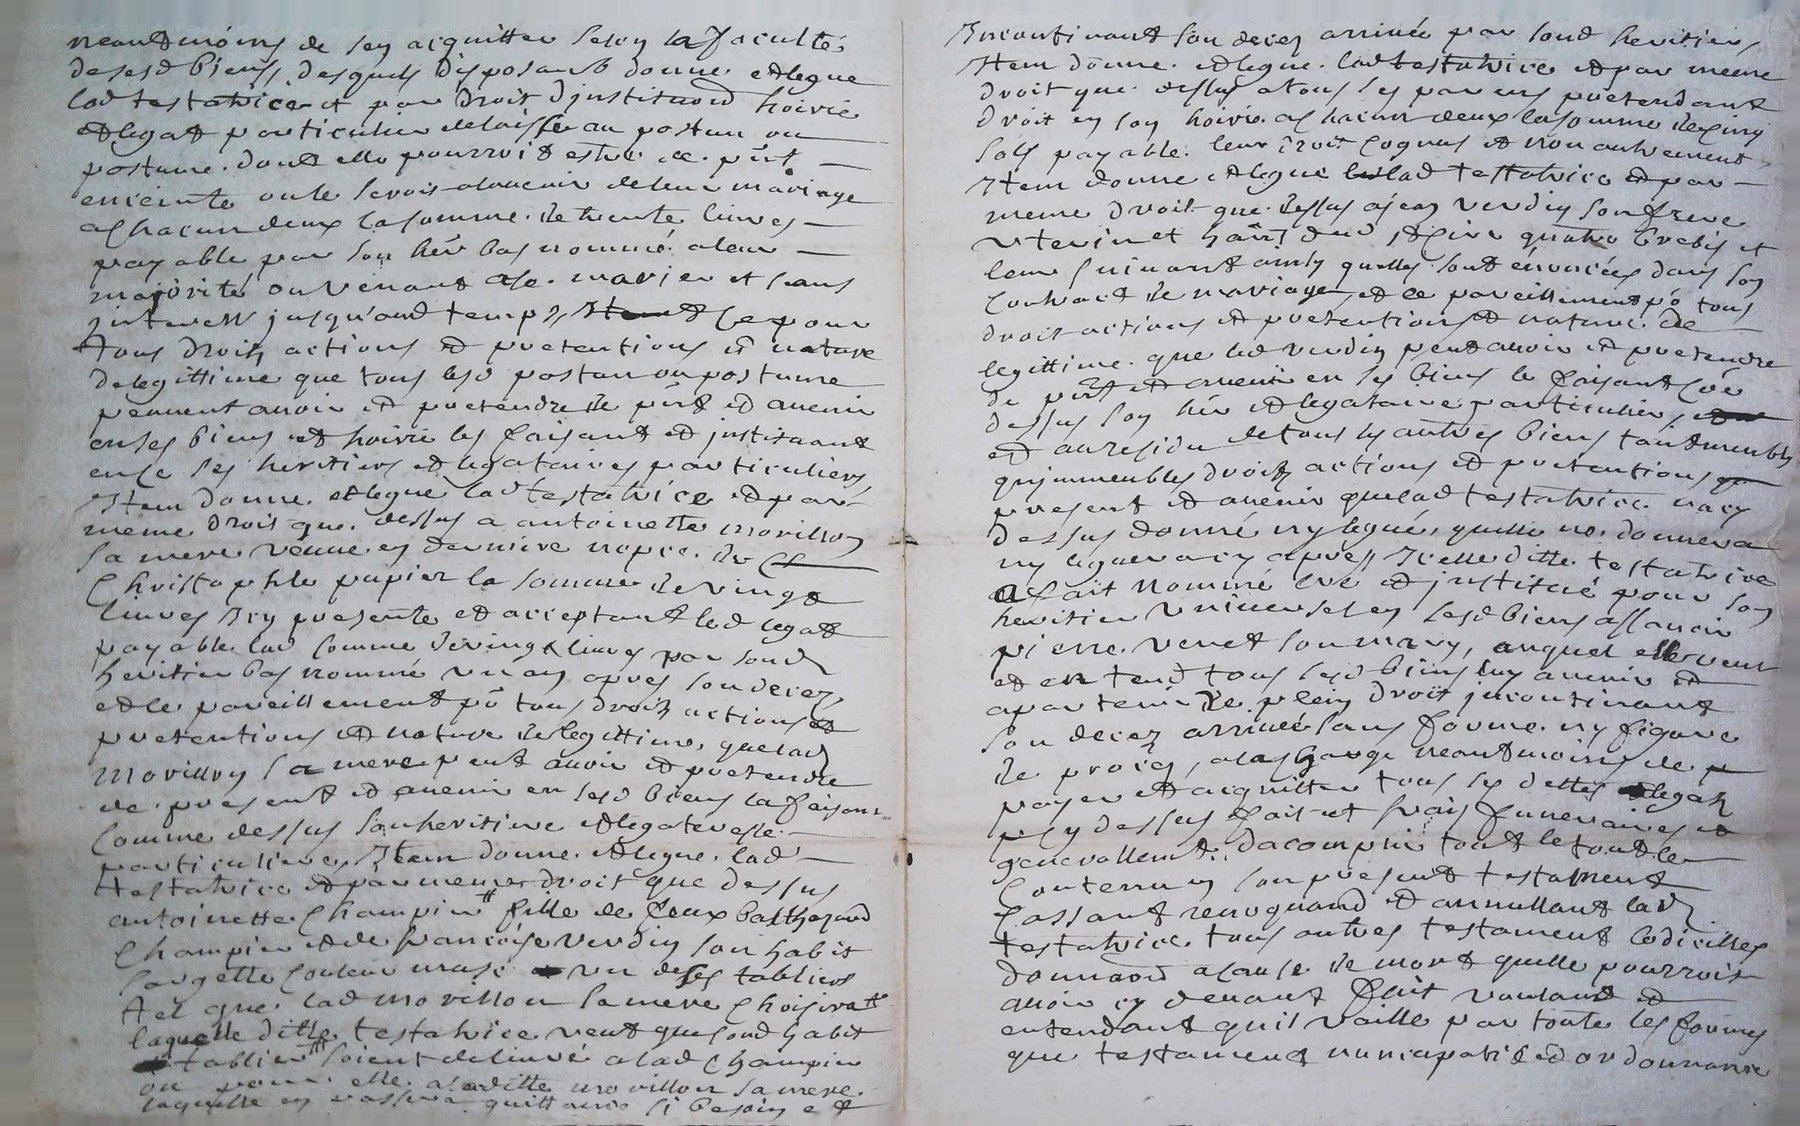 neantmoins de sen acquitter selon la faculté
desesd biens desquels disposant donne et legue
lad testatrice et par droit djnstituon hoirie
et legat particulier delaisse au postume ou
postume dont elle pourroit estre de pnt
enceinte ou le seroit aladuenir de leur mariage
achacun deux lasomme de trente liures
payable par son her bas nommé a leur
majorité ou venant ase marier et sans
jnterest jusquaud temps et ce pour
tous droits actions et pretentions et nature
delegittime que tous lesd postume ou postume
peuuent auoir et pretendre de pnt et auenir
en ses biens et hoirie les faisant et jnstituant
en ce ses heritiers et legataires particuliers
Item donne et legue lad testatrice et par
meme droit que dessus a antoinette morillon
sa mere veuue en derniere nopce de
Christophle papier la somme de vingt
liures Icy presente et acceptant led legat
payable lad somme de vingt liures par sond
heritier bas nommé un an apres son decez
et ce pareillement po tous droits actions et
pretentions et nature de legittime que lad
morillon sa mere peut auoir et pretendre
de present et auenir en sesd biens la faisant
comme dessus son heritiere et legateresse
particuliere, Item donne et legue lad
testatrice et par meme droit que dessus
antoinette Champier fille de feux balthazard
Champier et de francoise verdin son habit
sargette couleur muse un de ses tabliers
tel que lad morillon sa mere choisira
laquelle ditte testatrice veut que sond habit
et tablier soient deliuré a lad Champier
ou pour elle a laditte morillon sa mere
laquelle en passera quittance si besoin est
Incontinant son decez arriué par sond heritier
Item donne et legue lad testatrice et par meme
droit que dessus a tous ses parens pretendant
droit en son hoirie achacun deux lasomme de cinq
sols payable leur droit cognus et non autrement
Item donne et legue lad testatrice et par
meme droit que dessus a jean verdin son frere
uterin et quatre brebis et
leur suiuant ainsy quelles sont énoncées dans son
contract de mariage, et ce pareillement po tous
droit actions et pretentions et nature de
legittime que led verdin peut auoir et pretendre
de pnt et auenir en ses biens le faisant coe
dessus son her et legataire particulier,
et au residu de tous les autres biens tant meubles
qujmmeubles droits actions et pretentions
present et auenir que lad testatrice na cy
dessus donné ny legué, quelle ne donnera
ny leguera cy apres Icelle ditte testatrice
a fait nommé cree et jnstitué pour son
heritier vniuersel en sesd biens assauoir
pierre venet son mary, auquel elle veut
et entend tous sesd biens luy auenir et
apartenir de plein droit jncontinant
son decez arriué sans forme ny figure
de procez, a la charge neantmoins de
payer et acquitter tous ses dettes et legats
pcy dessus fait et frais funeraires et
generallement dacomplir tout le
contenu en son present testament
cassant reuoquand et annullant lad
testatrice tous autres testament codicilles
donnaon a cause de mort quelle pourroit
auoir cy deuant fait voulant et
entendant quil vaille par toute les formes
que testament nuncupatif et ordonnance